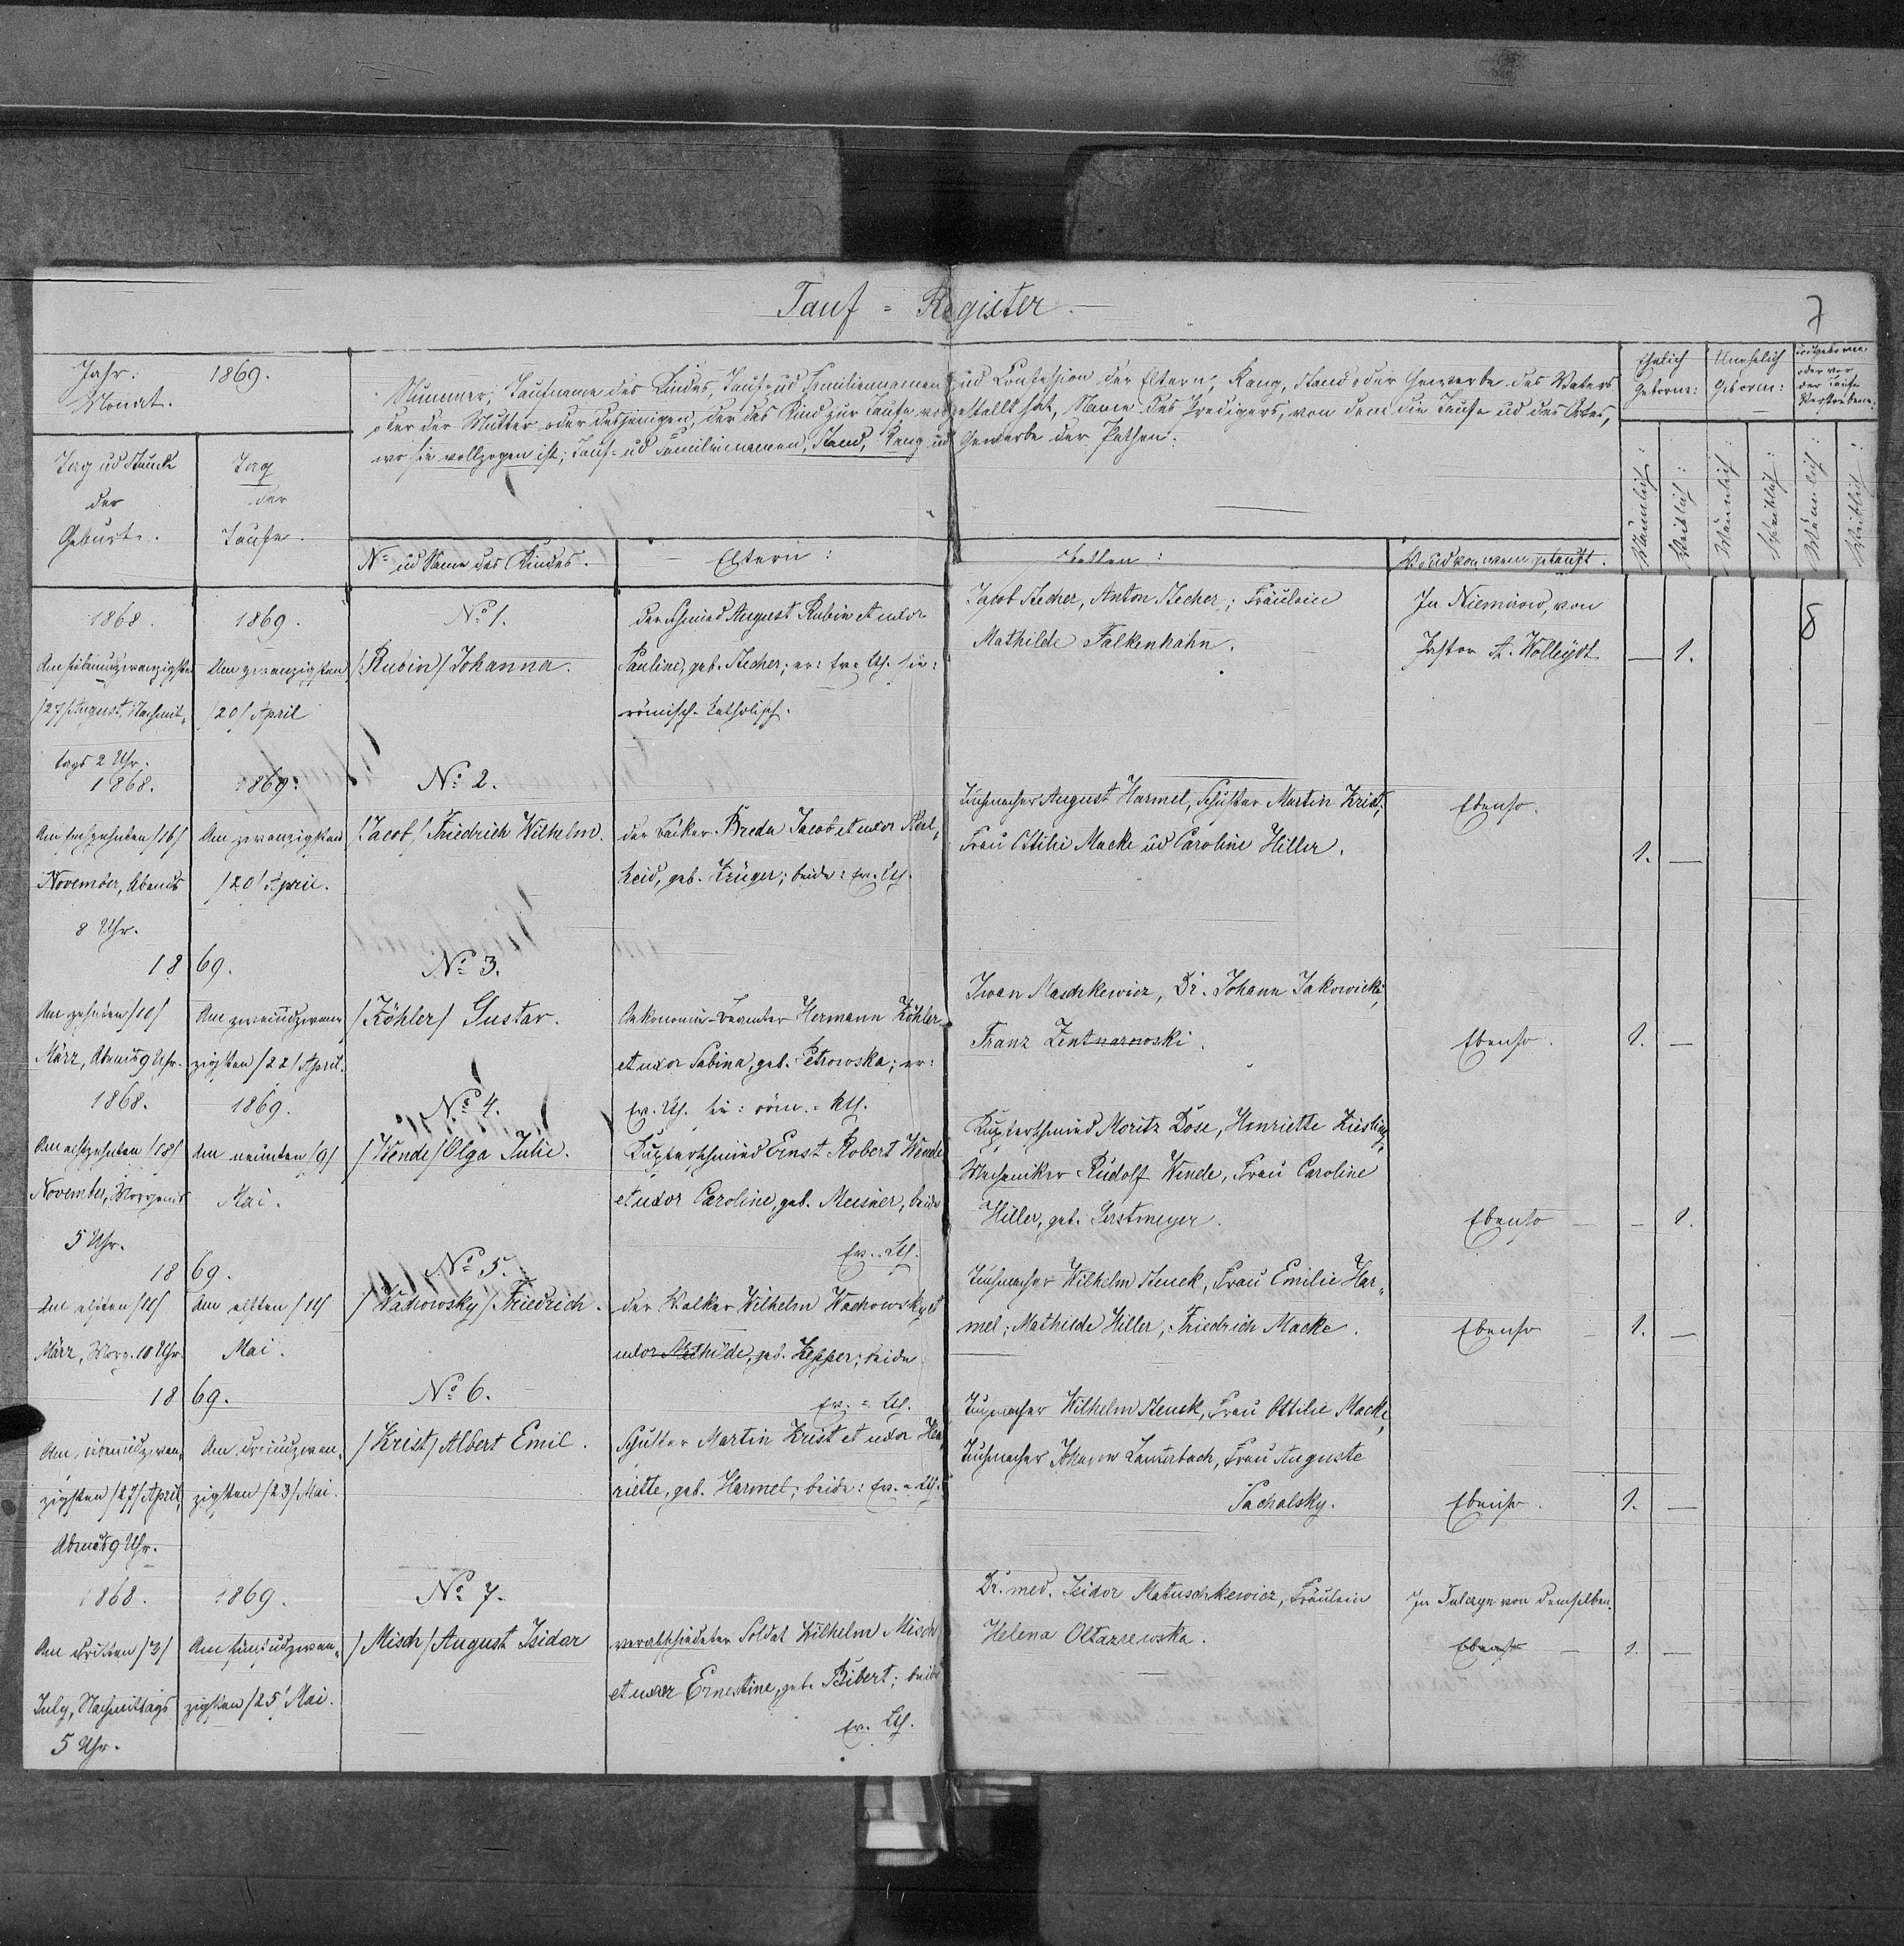 Tauf = Register.
7
Jahr: 1869.
Monat.
Nummer, Taufname des Kindes, Tauf- ud Familiennamen ud Confession der Eltern, Rang, Stand oder Gewerbe des Vaters
oder der Mutter oder desjenigen, der das Kind zur Taufe vorgestellt hat, Name des Predigers, von dem die Taufe ud des Ortes,
wo sie vollzogen ist; Tauf- ud Familiennamen, Stand, Rang ud Gewerbe der Pathen.
Ehelich
Geborne:
Unehelich
Geborne:
Todtgeborne
oder vor
der Taufe
Verstorbene.
Tag ud Stunde
der
Geburt.
Tag
der
Taufe.
No ud Name des Kindes.
Eltern:
Pathen:
Wo ud von wem getauft.
Männlich:
Weiblich:
Männlich:
Weiblich:
Männlich:
Weiblich:
8
1868.
Am siebenudzwanzigsten
/27/ August, Nachmit-
tags 2 Uhr.
1869.
Am zwanzigsten
/20/ April
No 1.
/Rubin/ Johanna.
der Schmied August Rubin et uxor
Pauline, geb. Stecher; er: ev.-luth. sie:
römisch-katholisch.
Jacob Stecher, Anton Stecher; Fräulein
Mathilde Falkenhahn.
In Niemirow, von
Pastor A. Wolleydt
1.
1868.
Am sechszehnten /16/
November, Abends
8 Uhr.
1869.
Am zwanzigsten
/20/ April.
No 2.
/Jacob/ Friedrich Wilhelm.
der Bäcker Breda Jacob et uxor Adel-
heid, geb. Krüger; beide: ev.-luth.
Tuchmacher August Harmel, Schuster Martin Krist,
Frau Ottilie Macke ud Caroline Hiller.
Ebenso.
1.
1869.
Am zehnten /10/
März, Abends 9 Uhr.
Am zweiudzwan-
zigsten /22/ April.
No 3.
/Köhler/ Gustav.
Oekonomie-Beamter Hermann Köhler
et uxor Sabina, geb. Petrowska; er:
ev. luth. sie: röm.-kth.
Iwan Maschkewicz, Dr. Johann Jakowicki,
Franz Zentnarowski.
Ebenso.
1.
1868.
Am achtzehnten /18/
November, Morgens
5 Uhr.
1869.
Am neunten /9/
Mai.
No 4.
/Wende/ Olga Julie.
Kupferschmied Ernst Robert Wende
et uxor Caroline, geb. Meisner, beide
ev.-luth.
Kupferschmied Moritz Döse, Henriette Kiesling,
Mechaniker Rudolf Wende, Frau Caroline
Hiller, geb. Serstmeyer.
Ebenso
1.
1869.
Am elften /11/
März, Morg. 10 Uhr.
Am elften /11/
Mai.
No 5.
/Wachowsky/ Friedrich.
der Walker Wilhelm Wachowsky et
uxor Mathilde, geb. Kepper; beide
ev.-luth.
Tuchmacher Wilhelm Steuck, Frau Emilie Har-
mel; Mathilde Hiller, Friedrich Macke.
Ebenso
1.
1869.
Am siebenudzwan-
zigsten /27/ April,
Abends 9 Uhr.
Am dreiudzwan-
zigsten /23/ Mai.
No 6.
/Krist/ Albert Emil.
Schuster Martin Krist et uxor Hen-
riette, geb. Harmel; beide: ev.-luth.
Tuchmacher Wilhelm Steuck, Frau Ottilie Macke,
Tuchmacher Johann Lauterbach, Frau Auguste
Sachalsky.
Ebenso.
1.
1868.
Am dritten /3/
July, Nachmittags
5 Uhr.
1869.
Am fünfudzwan-
zigsten /25/ Mai.
No 7.
/Misch/ August Isidor
verabschiedeter Soldat Wilhelm Misch
et uxor Ernestine, geb. Bibert; beide
ev. luth.
Dr. med. Isidor Matuschkewicz, Fräulein
Helena Oltarzewska.
In Tulczyn von demselben.
Ebenso
1.